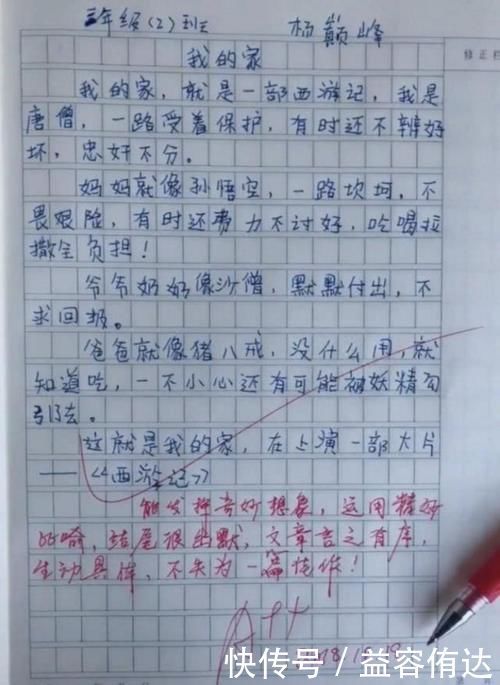 三年级(2)班 杨巅峰
修正栏
我的家
我的家，就是一部西游记，我是
唐僧，一路受着保护，有时还不辨好
坏，忠奸不分。
妈妈就像孙悟空，一路坎坷，不
畏艰险，有时还费力不讨好，吃喝拉
撒全负担！
爷爷奶奶像沙僧，默默付出，不
求回报。
爸爸就像猪八戒，没什么用，就
知道吃，一不小心还有可能被妖精勾
引去。
这就是我的家，在上演一部大片
——《西游记》
能发挥奇妙想象，运用精妙
比喻，结尾很幽默，文章言之有序，
生动具体，不失为一篇佳作！
A++
快传号／益容侑达